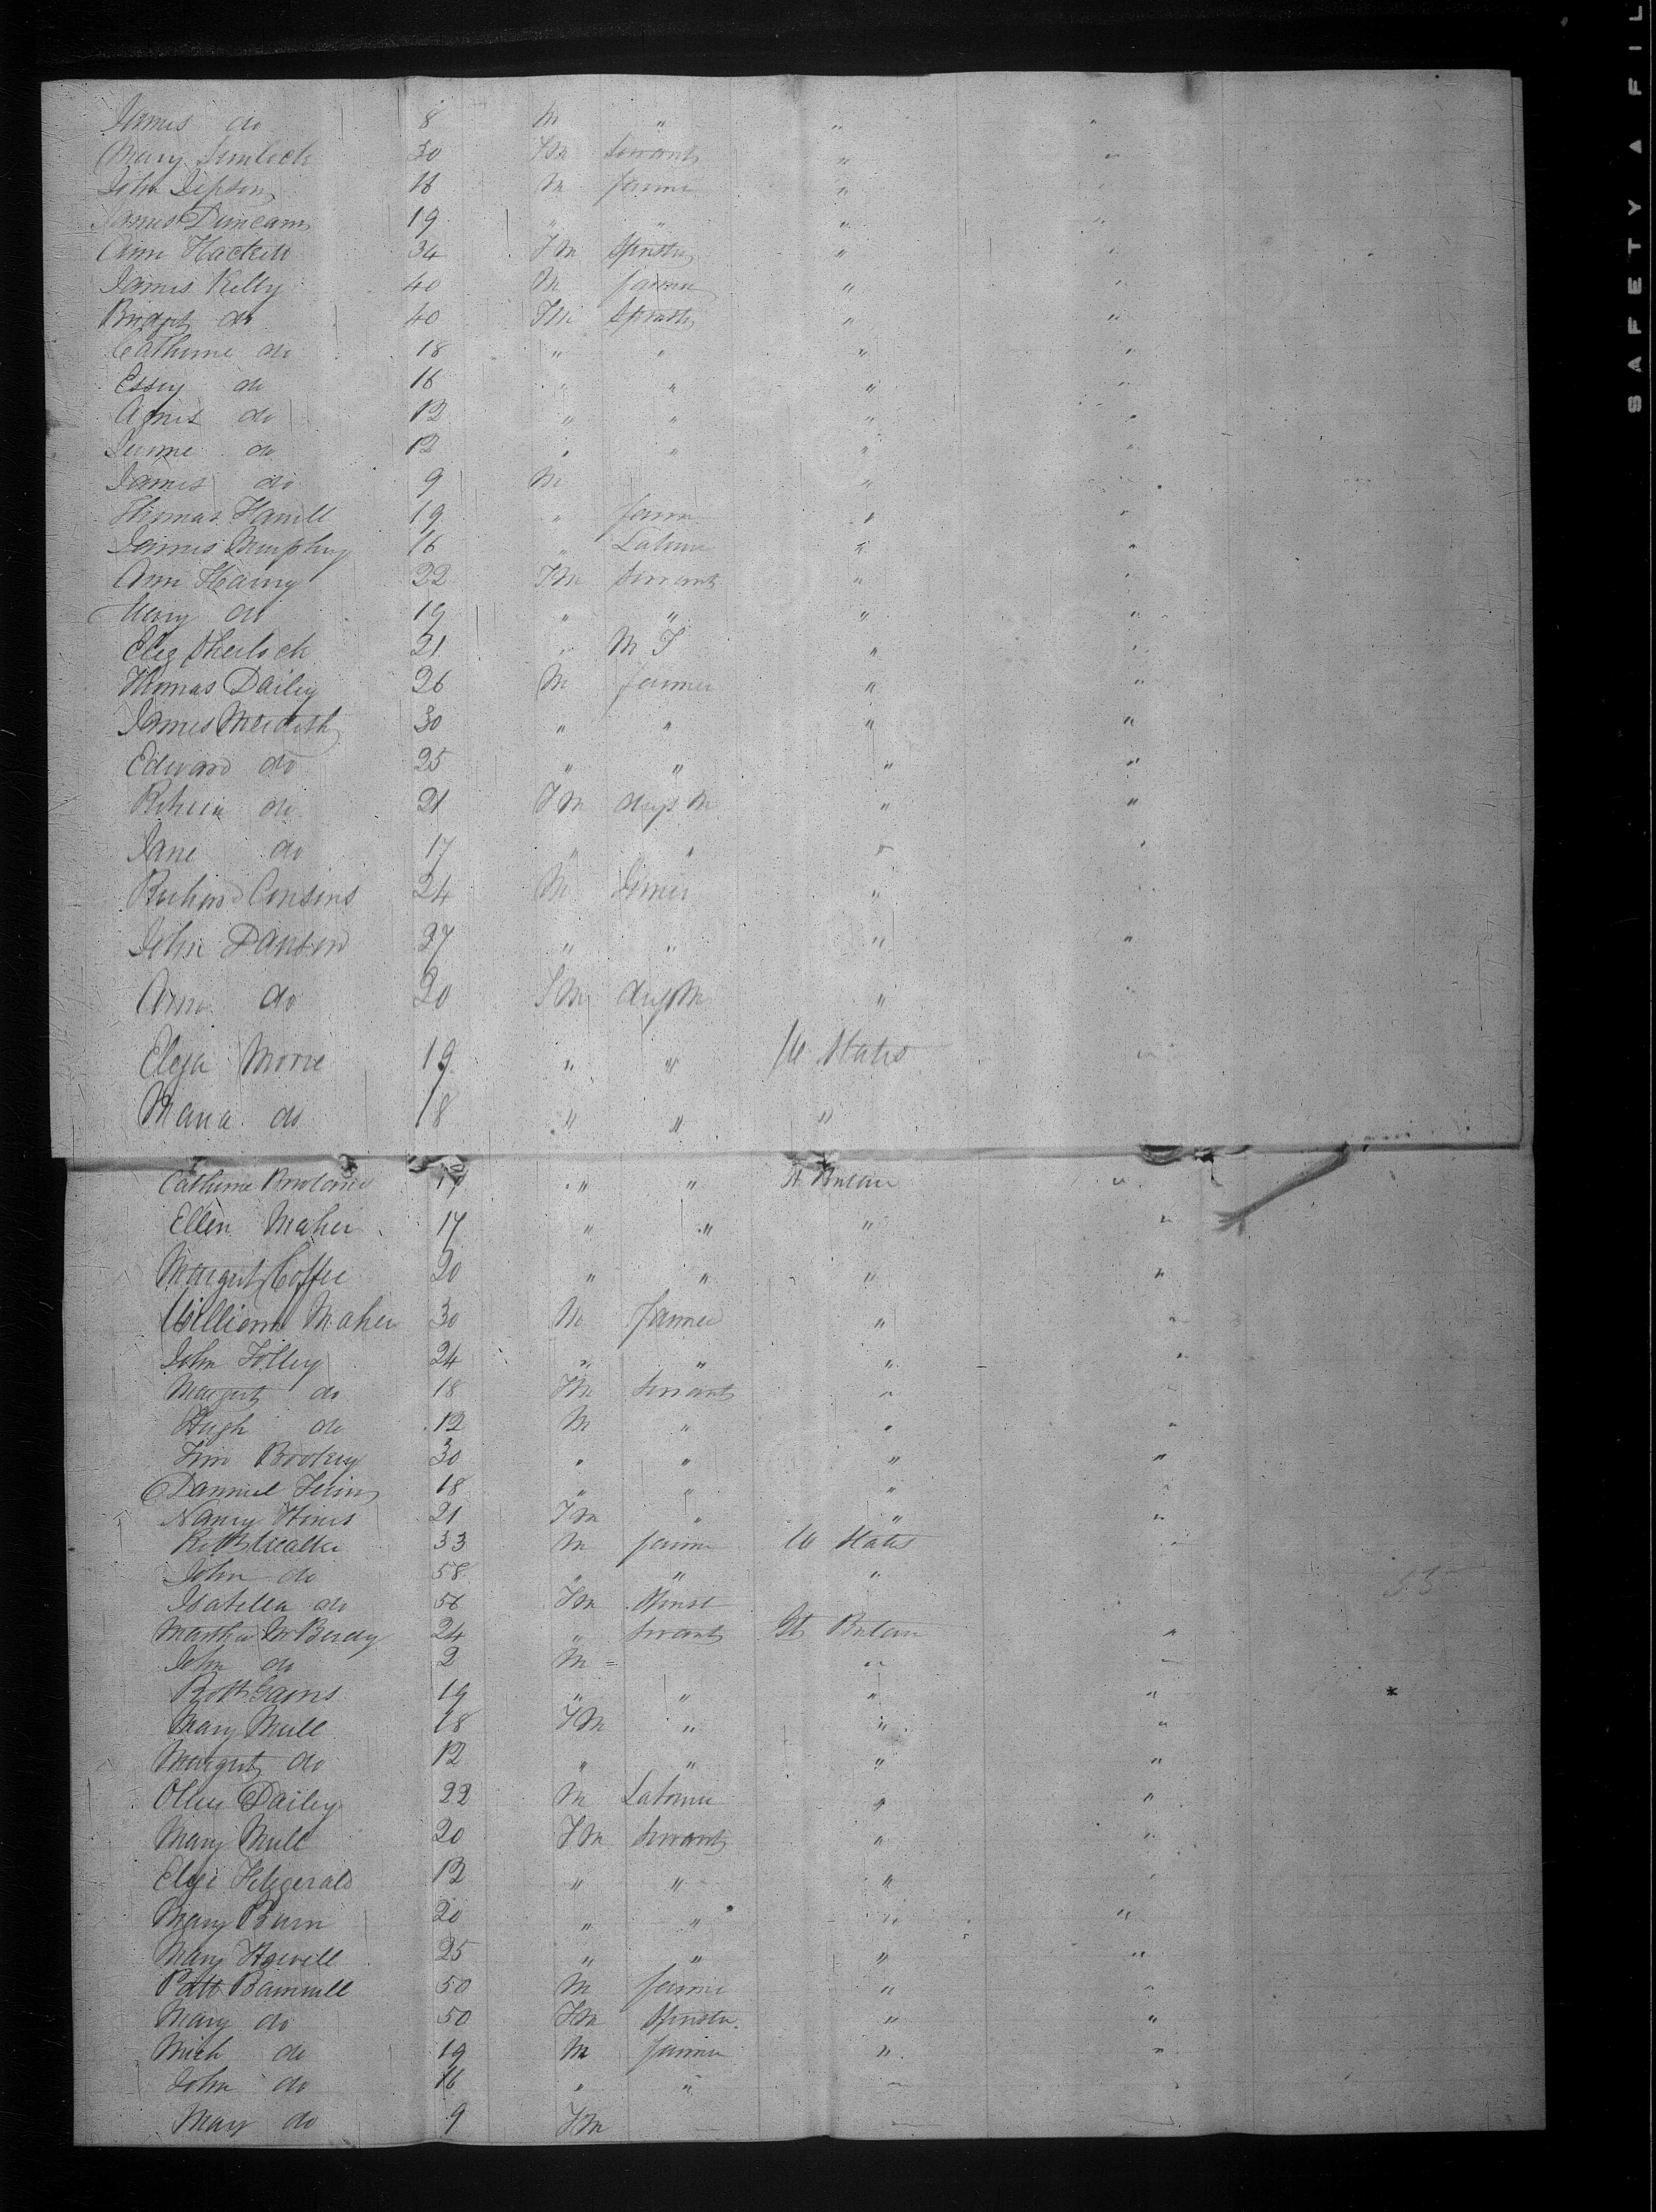 James do 8 M " " "
Mary 30 Fm Servant " "
John Jepson 18 M farmer " "
James Duncann 19 " " " "
Ann Hackett 34 Fm Spinster " "
James Kelly 40 M farmer " "
Bridget do 40 Fm Spinster " "
Catherine do 18 " " " "
Essey do 16 " " " "
Agnes do 12 " " " "
do 12 " " " "
James do 9 M " "
Thomas Hamill 19 " farmer " "
James Murphey 16 " Labour " "
Ann Harvy 22 Fm Servant " "
Mary do 19 " " " "
Eliz Sherlock 21 " M F " "
Thomas Dailey 26 M farmer " "
James Meridith 30 " " " "
Edward do 25 " " " "
do 21 Fm M " "
Jane do 17 " " " "
Richard Consins 24 M " "
John Dawson 27 " " " "
Ann do 20 Fm M " "
Eliza Morre 19 " " U States "
Maria do 18 " " "
Catherine 17 " " Gt Britain "
Ellen Maher 17 " " " "
Margret Coffee 20 " " " "
William Maher 30 M farmer " "
John Folley 24 " " " "
Margret do 18 Fm Servant " "
Hugh do 12 M " " "
Tim 30 " " " "
Danniel 18 " " " "
Nancy Hines 21 Fm " " "
Robt Walker 33 M farmer U States "
John do 58 " " "
Isabella do 56 Fm Spinst 53
Martha McBurdy 24 " Servant Gt Britain "
John do 2 M = " "
Robt Gains 19 " " " " *
Mary Mull 18 Fm " " "
Margret do 12 " " " "
Dailey 22 M Labourer " "
Mary Mull 20 Fm Servant " "
Fitzgerald 12 " " " "
Mary Burn 20 " " " "
Mary 25 " " " "
Patt 50 M farmer " "
Mary do 50 Fm Spinster " "
Mich do 19 M farmer " "
John do 16 " " " "
Mary do 9 Fm
SAFETY ▲ FIL